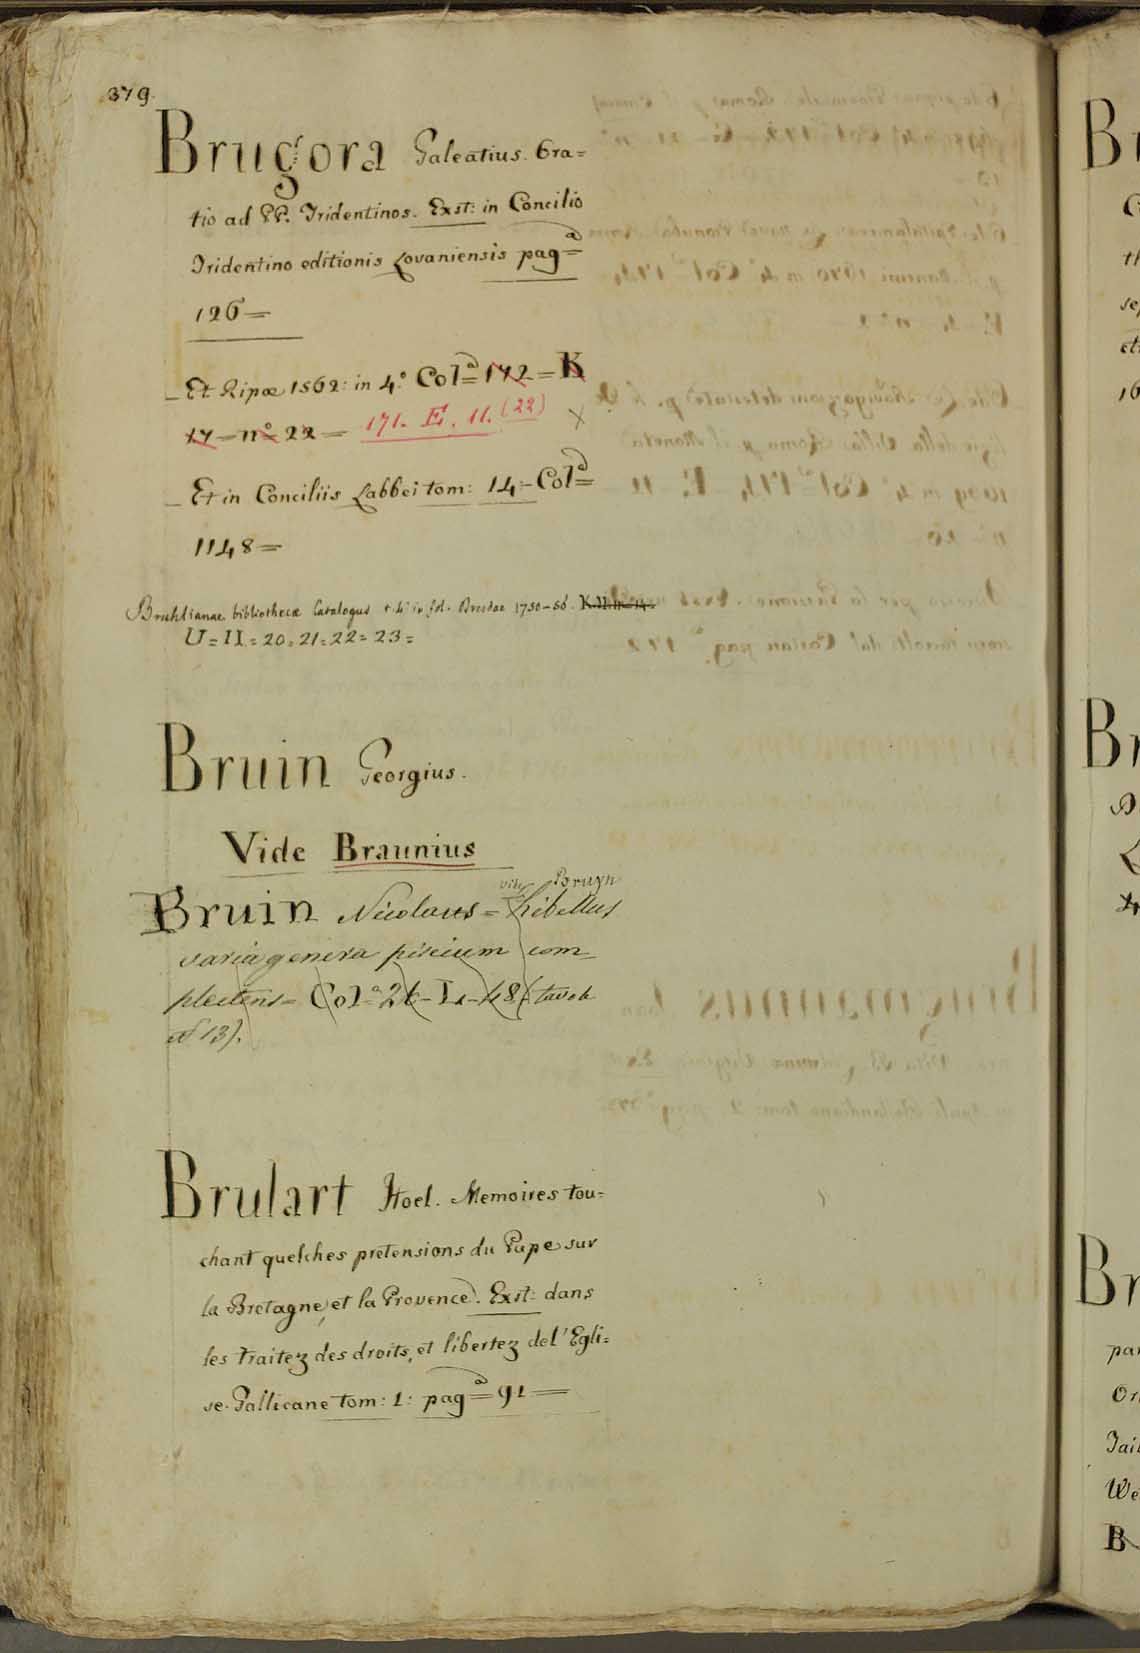 379.
Brugora Galeatius. Ora=
tio ad PP. Tridentinos. Exst: in Concilio
Tridentino editionis Lovaniensis pag=a
126=
_ Et Ripæ 1562: in 4.° Col=a 172 = K
17 = n° 22 = 171. E. 11. (22) X
_ Et in Conciliis Labbei tom: 14: Col=a
1148=
Bruhlianae bibliothecæ Catalogus t. 4: in fol. Dresdae 1750-56. K. II. n= 14.
U = II. = 20. 21. 22 = 23 =
Bruin Georgius.
Vide Braunius
vide Bruyn
Bruin Nicolaus = Libellus
varia genera piscium com_
plectens = Col.a 26 - L. - 48 (tavole
n° 13).
Brulart Noel. Memoires tou=
chant quelches pretensions du Pape sur
la Bretagne, et la Provence. Exst: dans
les traitez des droits, et libertez del' Egli=
se Gallicane tom: 1: pag=a 91 =
Br
Br
Br